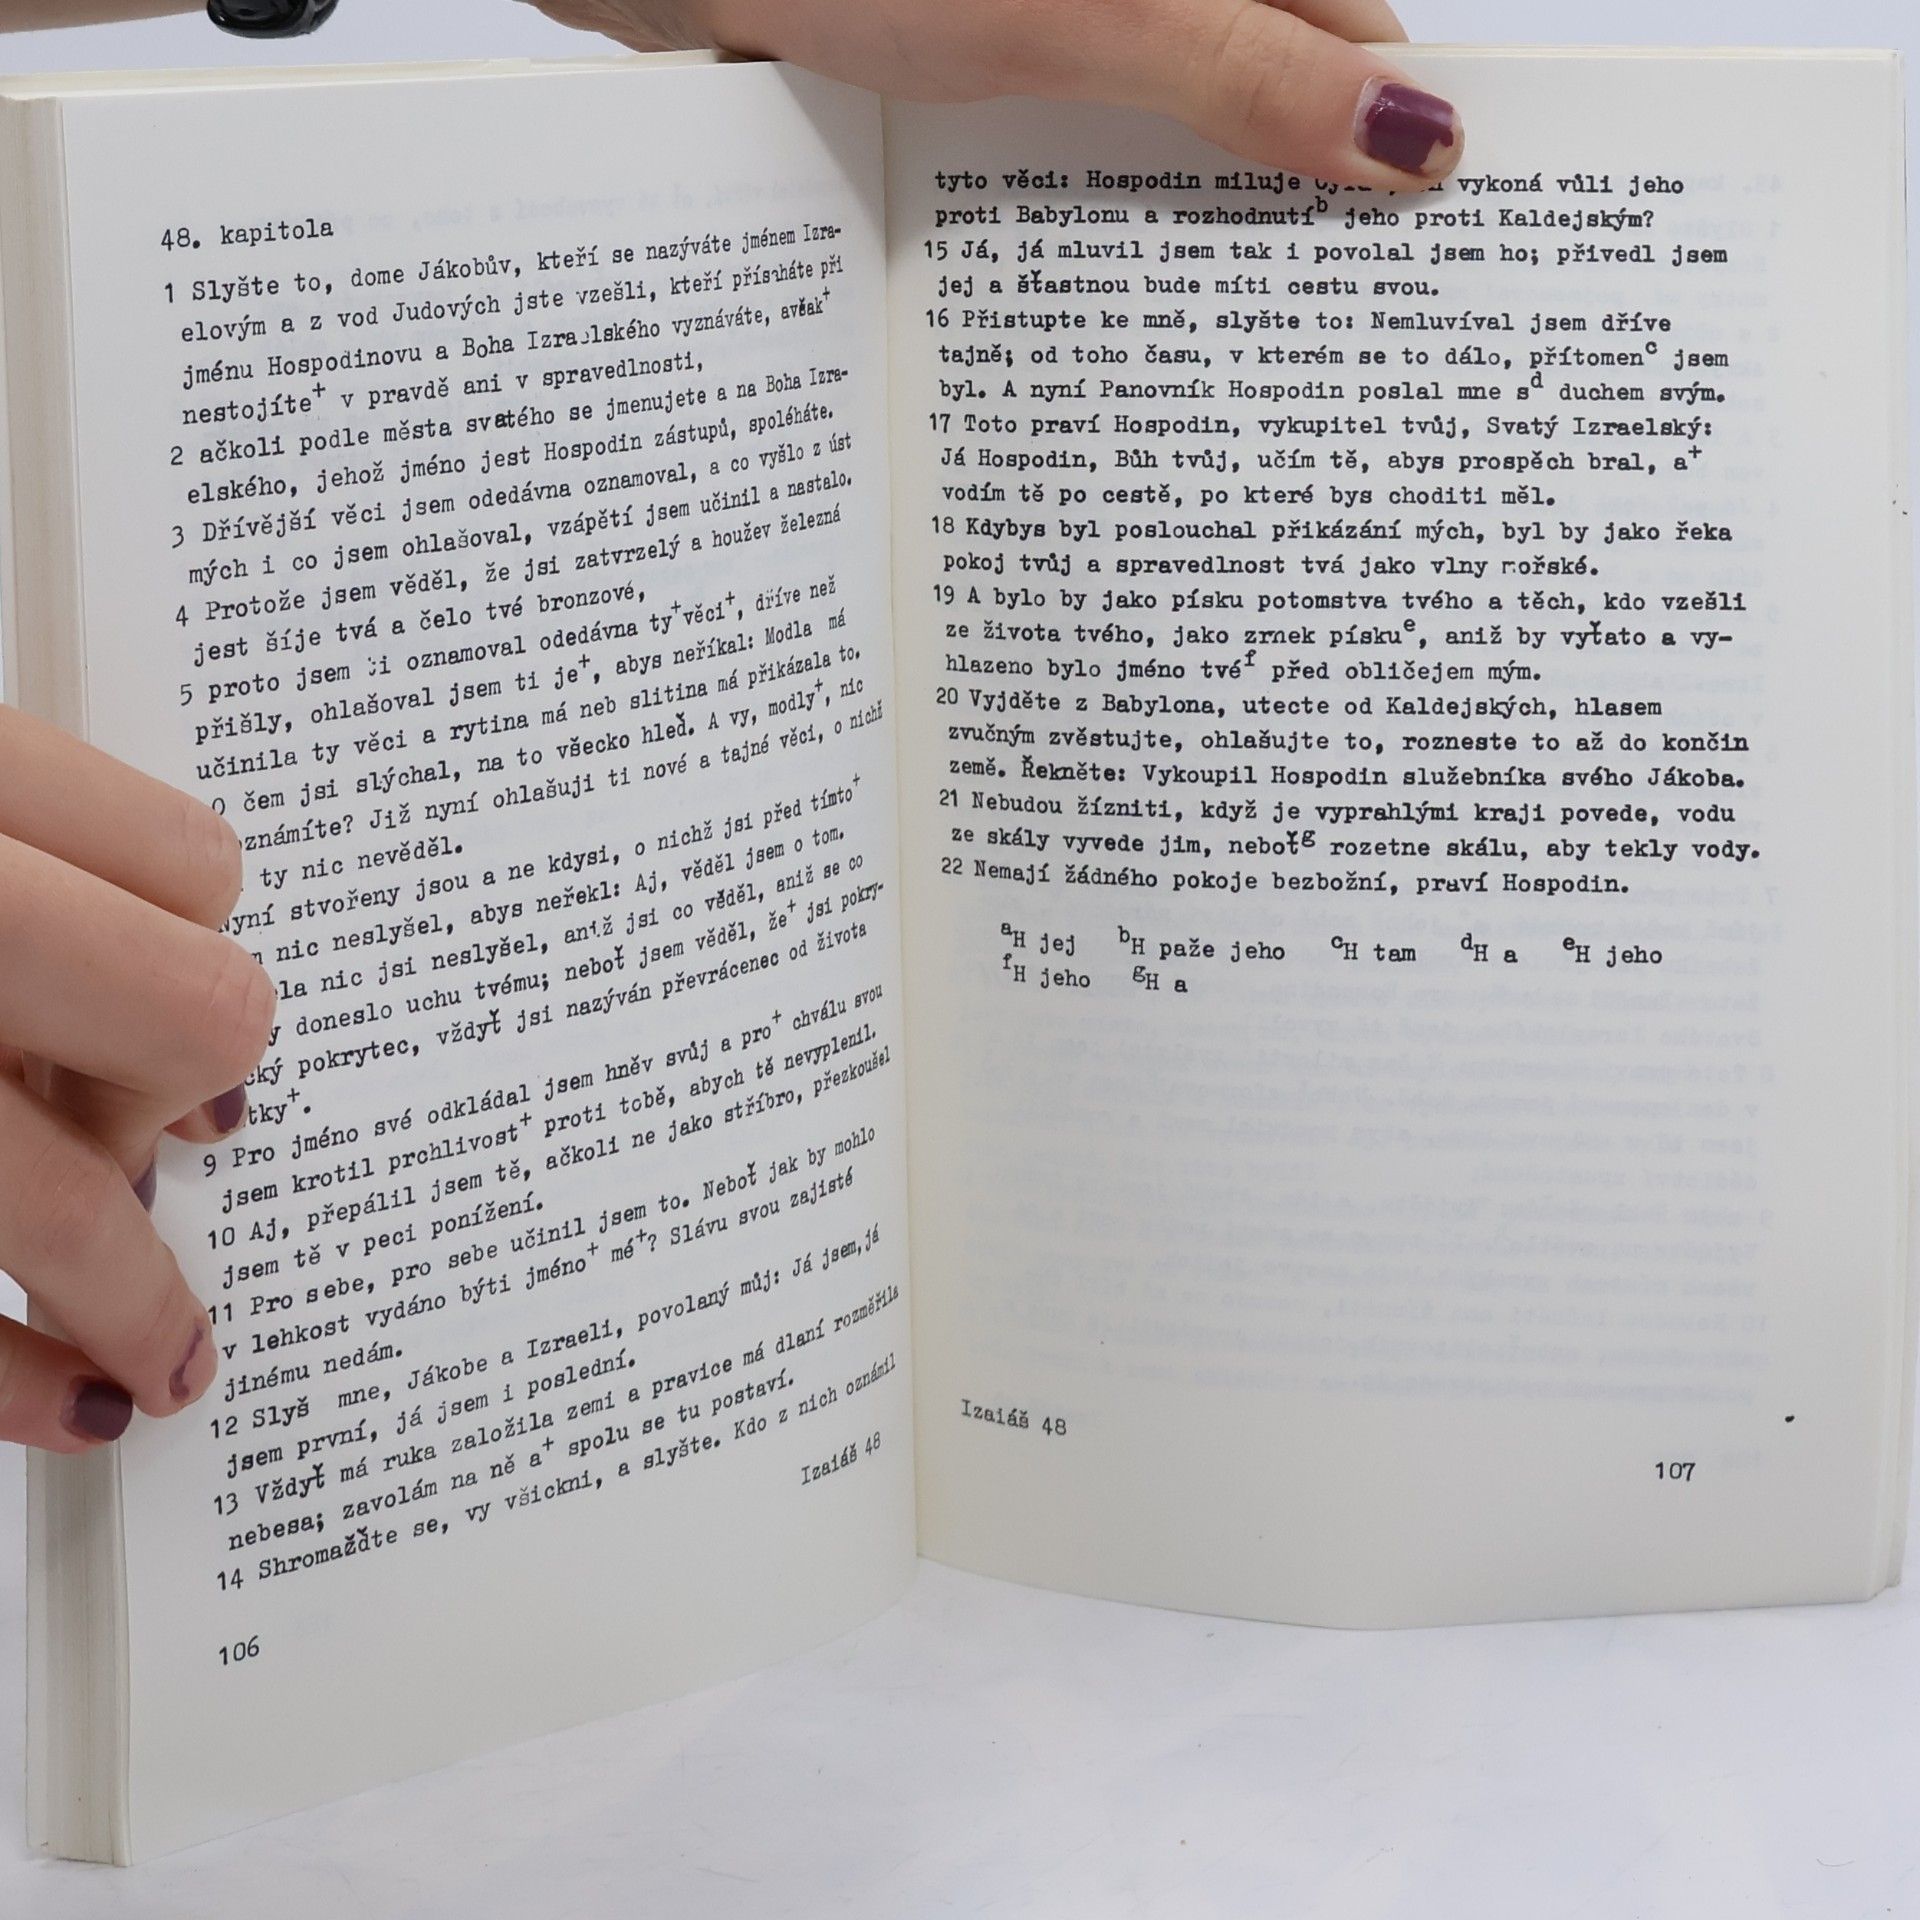 48. kapitola
1 Slyšte to, dome Jákobův, kteří se nazýváte jménem Izra-
elovým a z vod Judových jste vzešli, kteří přísaháte při
jménu Hospodinovu a Boha Izraelského vyznáváte, avšak+
nestojíte+ v pravdě ani v spravedlnosti,
2 ačkoli podle města svatého se jmenujete a na Boha Izra-
elského, jehož jméno jest Hospodin zástupů, spoléháte.
3 Dřívější věci jsem odedávna oznamoval, a co vyšlo z úst
mých i co jsem ohlašoval, vzápětí jsem učinil a nastalo.
4 Protože jsem věděl, že jsi zatvrzelý a houžev železná
jest šíje tvá a čelo tvé bronzové,
5 proto jsem ti oznamoval odedávna ty+věci+, dříve než
přišly, ohlašoval jsem ti je+, abys neříkal: Modla má
učinila ty věci a rytina má neb slitina má přikázala to.
O čem jsi slýchal, na to všecko hleď. A vy, modly+, nic
oznámíte? Již nyní ohlašuji ti nové a tajné věci, o nichž
ty nic nevěděl.
Nyní stvořeny jsou a ne kdysi, o nichž jsi před tímto+
nic neslyšel, abys neřekl: Aj, věděl jsem o tom.
nic jsi neslyšel, aniž jsi co věděl, aniž se co
doneslo uchu tvému; neboť jsem věděl, že+ jsi pokry-
cký pokrytec, vždyť jsi nazýván převrácenec od života
tky+.
9 Pro jméno své odkládal jsem hněv svůj a pro+ chválu svou
jsem krotil prchlivost+ proti tobě, abych tě nevyplenil.
10 Aj, přepálil jsem tě, ačkoli ne jako stříbro, přezkoušel
jsem tě v peci ponížení.
11 Pro sebe, pro sebe učinil jsem to. Neboť jak by mohlo
v lehkost vydáno býti jméno+ mé+? Slávu svou zajisté
jinému nedám.
12 Slyš mne, Jákobe a Izraeli, povolaný můj: Já jsem,já
jsem první, já jsem i poslední.
13 Vždyť má ruka založila zemi a pravice má dlaní rozměřila
nebesa; zavolám na ně a+ spolu se tu postaví.
14 Shromažďte se, vy všickni, a slyšte. Kdo z nich oznámil
Izaiáš 48
106
tyto věci: Hospodin miluje vykoná vůli jeho
proti Babylonu a rozhodnutíb jeho proti Kaldejským?
15 Já, já mluvil jsem tak i povolal jsem ho; přivedl jsem
jej a šťastnou bude míti cestu svou.
16 Přistupte ke mně, slyšte to: Nemluvíval jsem dříve
tajně; od toho času, v kterém se to dálo, přítomenc jsem
byl. A nyní Panovník Hospodin poslal mne sd duchem svým.
17 Toto praví Hospodin, vykupitel tvůj, Svatý Izraelský:
Já Hospodin, Bůh tvůj, učím tě, abys prospěch bral, a+
vodím tě po cestě, po které bys choditi měl.
18 Kdybys byl poslouchal přikázání mých, byl by jako řeka
pokoj tvůj a spravedlnost tvá jako vlny mořské.
19 A bylo by jako písku potomstva tvého a těch, kdo vzešli
ze života tvého, jako zrnek pískue, aniž by vyťato a vy-
hlazeno bylo jméno tvéf před obličejem mým.
20 Vyjděte z Babylona, utecte od Kaldejských, hlasem
zvučným zvěstujte, ohlašujte to, rozneste to až do končin
země. Řekněte: Vykoupil Hospodin služebníka svého Jákoba.
21 Nebudou žízniti, když je vyprahlými kraji povede, vodu
ze skály vyvede jim, neboťg rozetne skálu, aby tekly vody.
22 Nemají žádného pokoje bezbožní, praví Hospodin.
aH jej bH paže jeho cH tam dH a eH jeho
fH jeho gH a
Izaiáš 48
107